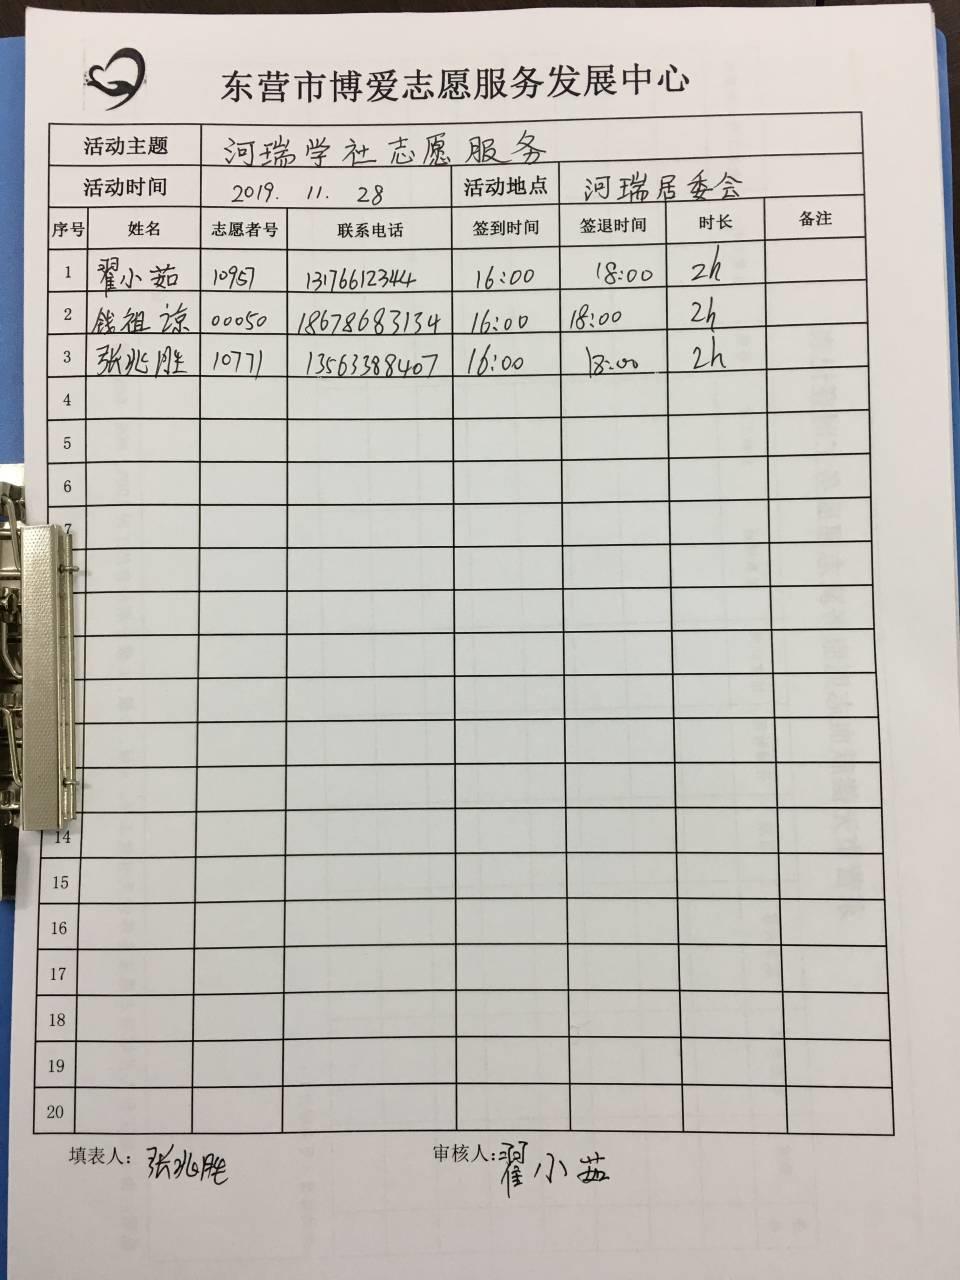 东营市博爱志愿服务发展中心
活动主题 河瑞学社志愿服务
活动时间 2019. 11. 28 活动地点 河瑞居委会
序号 姓名 志愿者号 联系电话 签到时间 签退时间 时长 备注
1 翟小茹 10957 13176612344 16:00 18:00 2h
2 钱祖凉 00050 18678683134 16:00 18:00 2h
3 张兆胜 10771 13563388407 16:00 18:00 2h
4
5
6
7
14
15
16
17
18
19
20
填表人: 张兆胜 审核人: 翟小茹